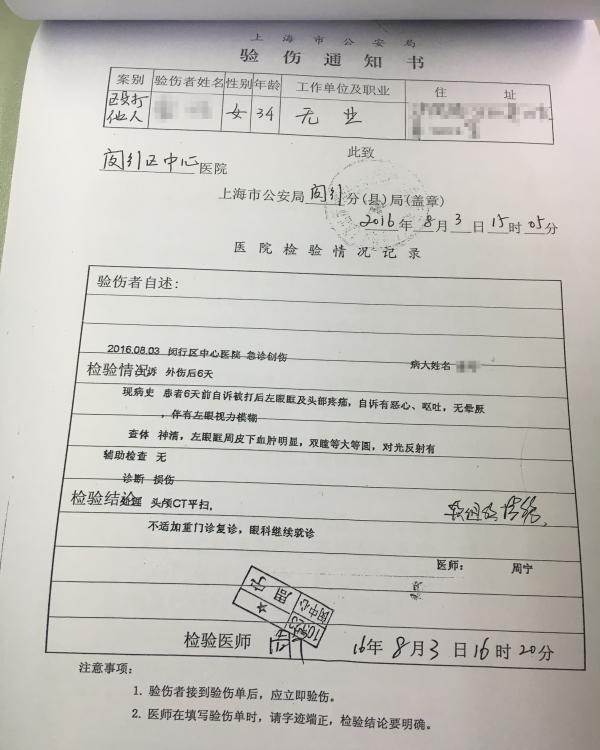 上海市公安局
验伤通知书
案别 验伤者姓名 性别 年龄 工作单位及职业 住址
殴打他人 女 34 无业
此致
闵行区中心医院
上海市公安局闵行分(县)局(盖章)
2016年8月3日15时05分
医院检验情况记录
验伤者自述:
2016.08.03 闵行区中心医院 急诊创伤 病人姓名
检验情况 主诉 外伤后6天
现病史 患者6天前自诉被打后左眼眶及头部疼痛,自诉有恶心、呕吐,无晕厥
,伴有左眼视力模糊
查体 神清,左眼眶周皮下血肿明显,双瞳等大等圆,对光反射有
辅助检查 无
诊断 损伤
检验结论 处理 头颅CT平扫, 软组织挫伤.
不适加重门诊复诊,眼科继续就诊
医师: 周宁
周宁
闵中心
检验医师 16年8月3日16时20分
注意事项:
1. 验伤者接到验伤单后,应立即验伤。
2. 医师在填写验伤单时,请字迹端正,检验结论要明确。